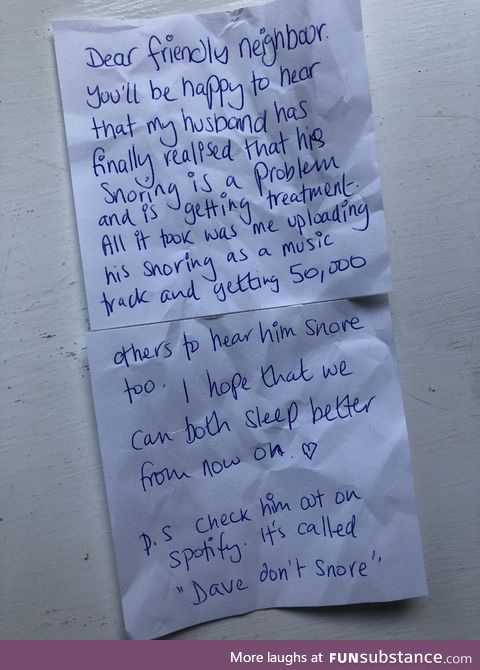 Dear friendly neighbour.
You'll be happy to hear
that my husband has
finally realised that his
Snoring is a Problem
and is getting treatment.
All it took was me uploading
his snoring as a music
track and getting 50,000
others to hear him snore
too. I hope that we
can both sleep better
from now on. ♡
P.S check him out on
spotify. it's called
"Dave don't snore".
More laughs at FUNsubstance.com